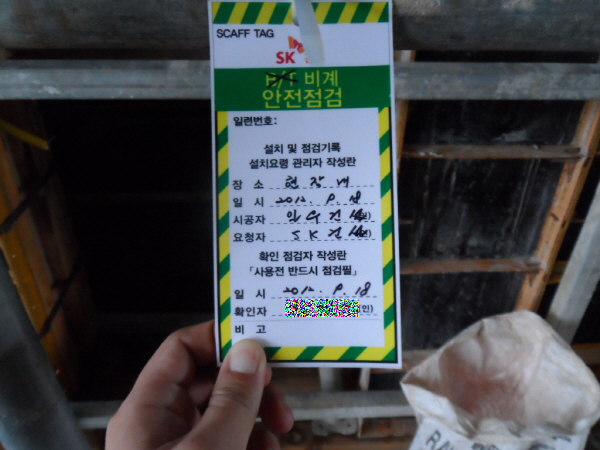 SCAFF TAG
SK
B/T 비계
안전점검
일련번호:
설치 및 점검기록
설치요령 관리자 작성란
장 소 현장내
일 시 2012. 9. 18
시공자
요청자 SK건설
확인 점검자 작성란
「사용전 반드시 점검필」
일 시 2012. 9. 18
확인자 인)
비 고
RA